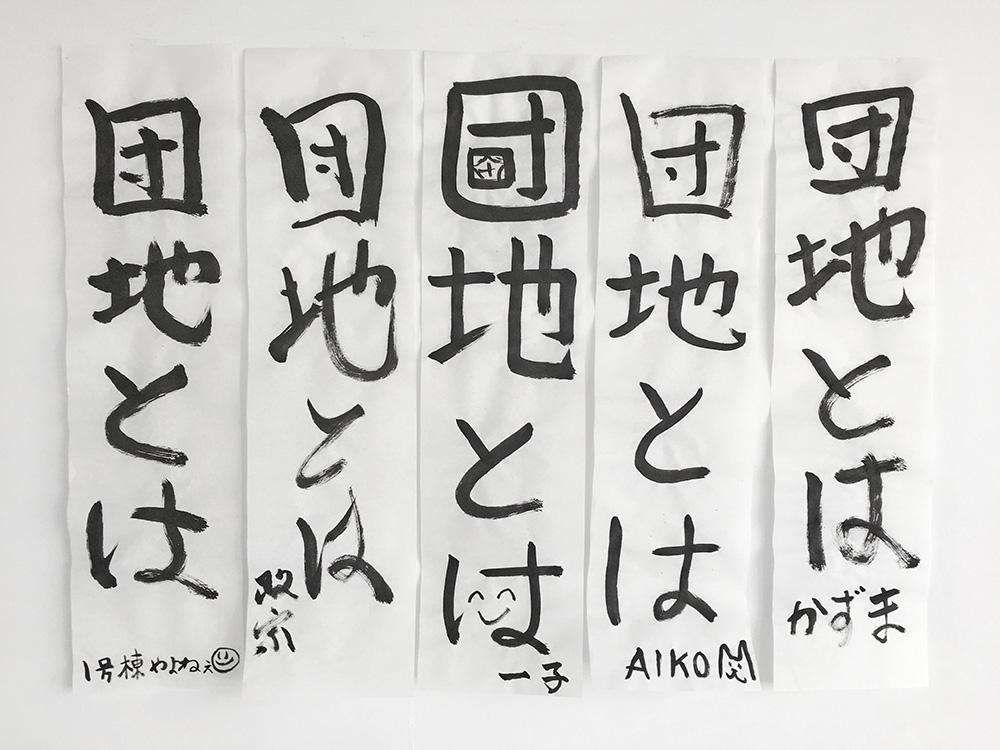 団地とは
かずま
団地とは
AIKO
団地とは
一子
団地とは
双宗
団地とは
1号棟 やよねぇ